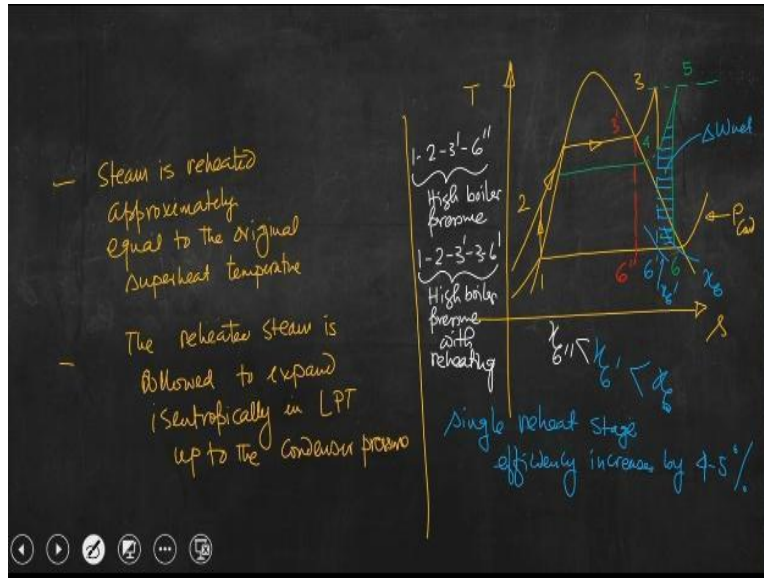 — Steam is reheated
approximately
equal to the original
superheat temperature
— The reheated steam is
followed to expand
isentropically in LPT
up to the condenser pressure
1-2-3'-6"
High boiler
pressure
1-2-3'-3-6'
High boiler
pressure
with
reheating
T
3
5
3'
4
ΔWnet
2
1
6"
6'
6
x6'
x6
s
x6" < x6' < x6
single reheat stage
efficiency increases by 4-5%